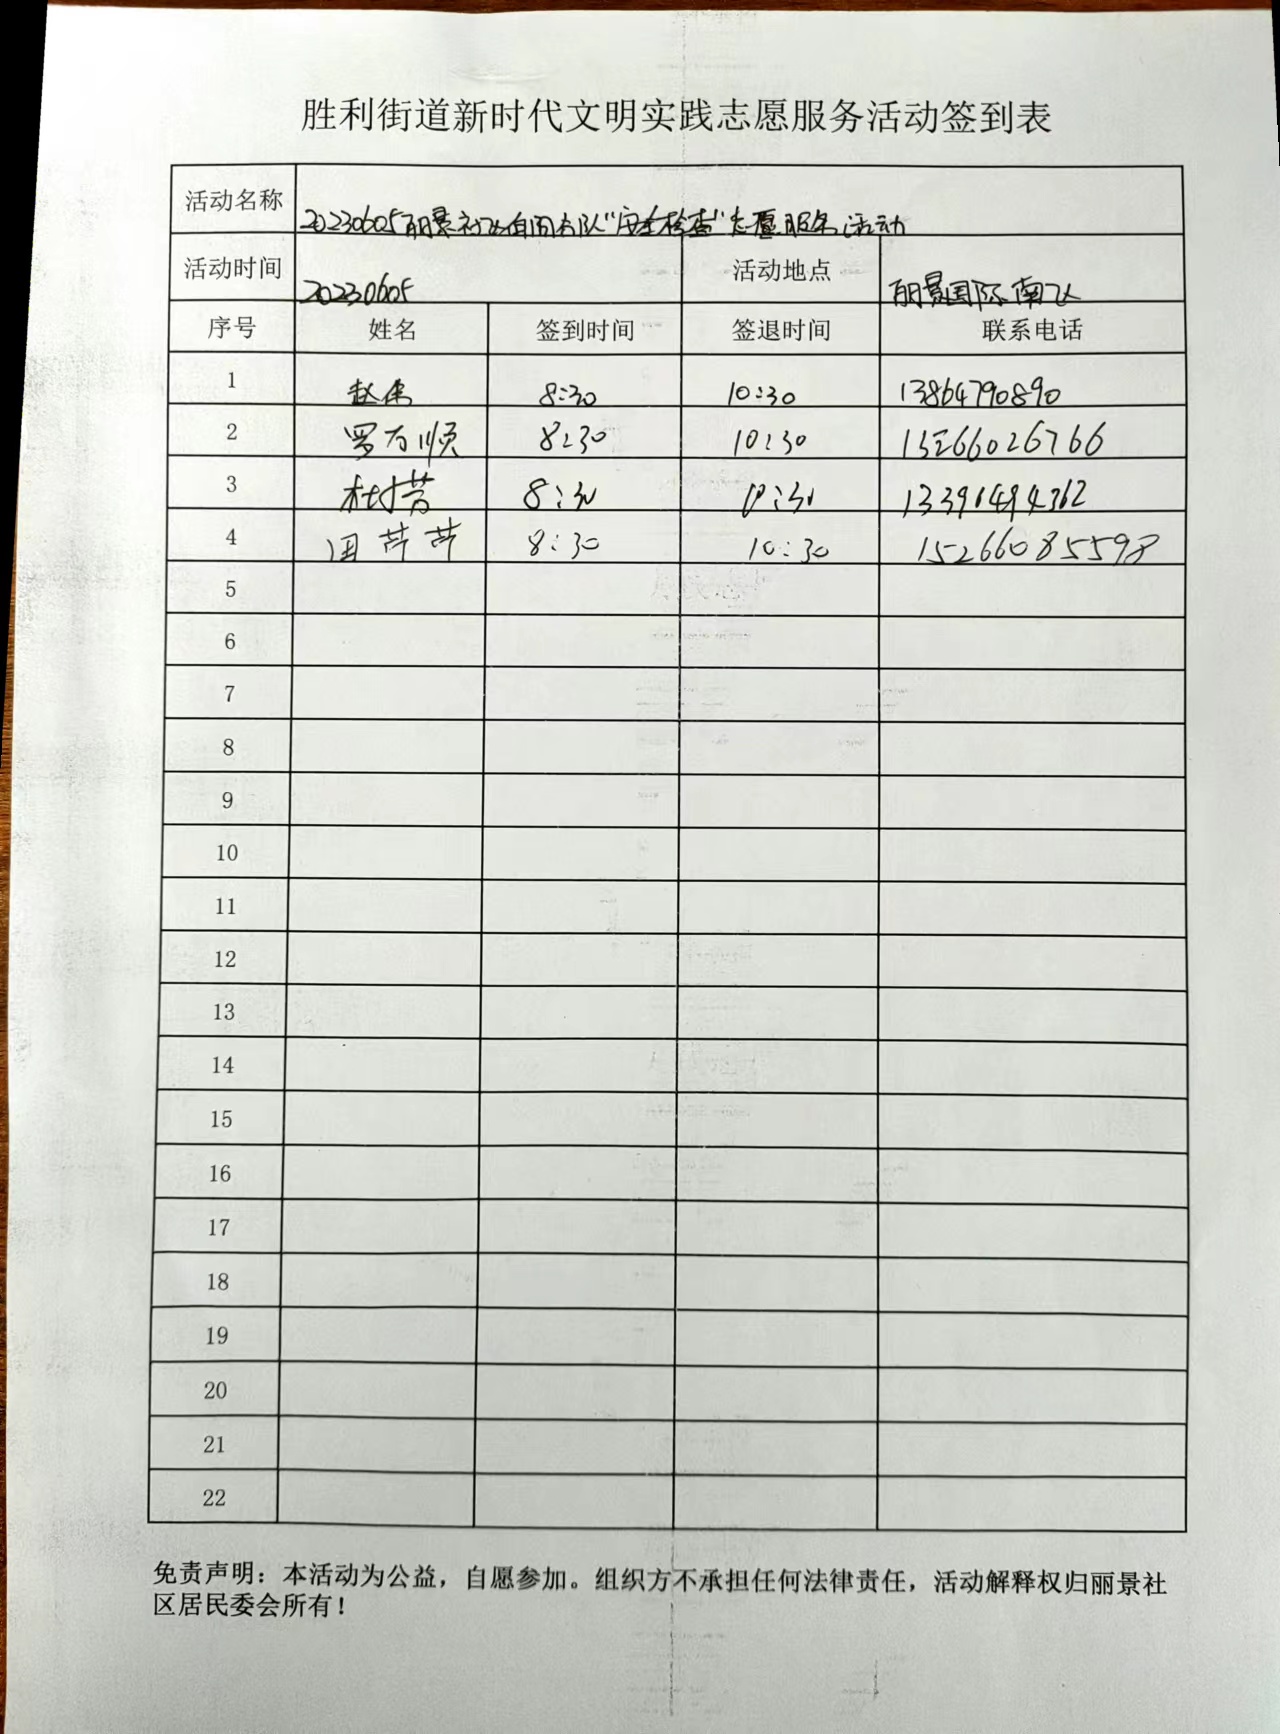 胜利街道新时代文明实践志愿服务活动签到表
活动名称 20230605丽景社区自因大队"安全检查"志愿服务活动
活动时间 20230605 活动地点 丽景国际南区
序号 姓名 签到时间 签退时间 联系电话
1 赵伟 8:30 10:30 13864790890
2 罗百顺 8:30 10:30 66026766
3 杜芳 8:30 10:30
4 田芹芹 8:30 10:30 15266085598
5
6
7
8
9
10
11
12
13
14
15
16
17
18
19
20
21
22
免责声明：本活动为公益，自愿参加。组织方不承担任何法律责任，活动解释权归丽景社
区居民委会所有！